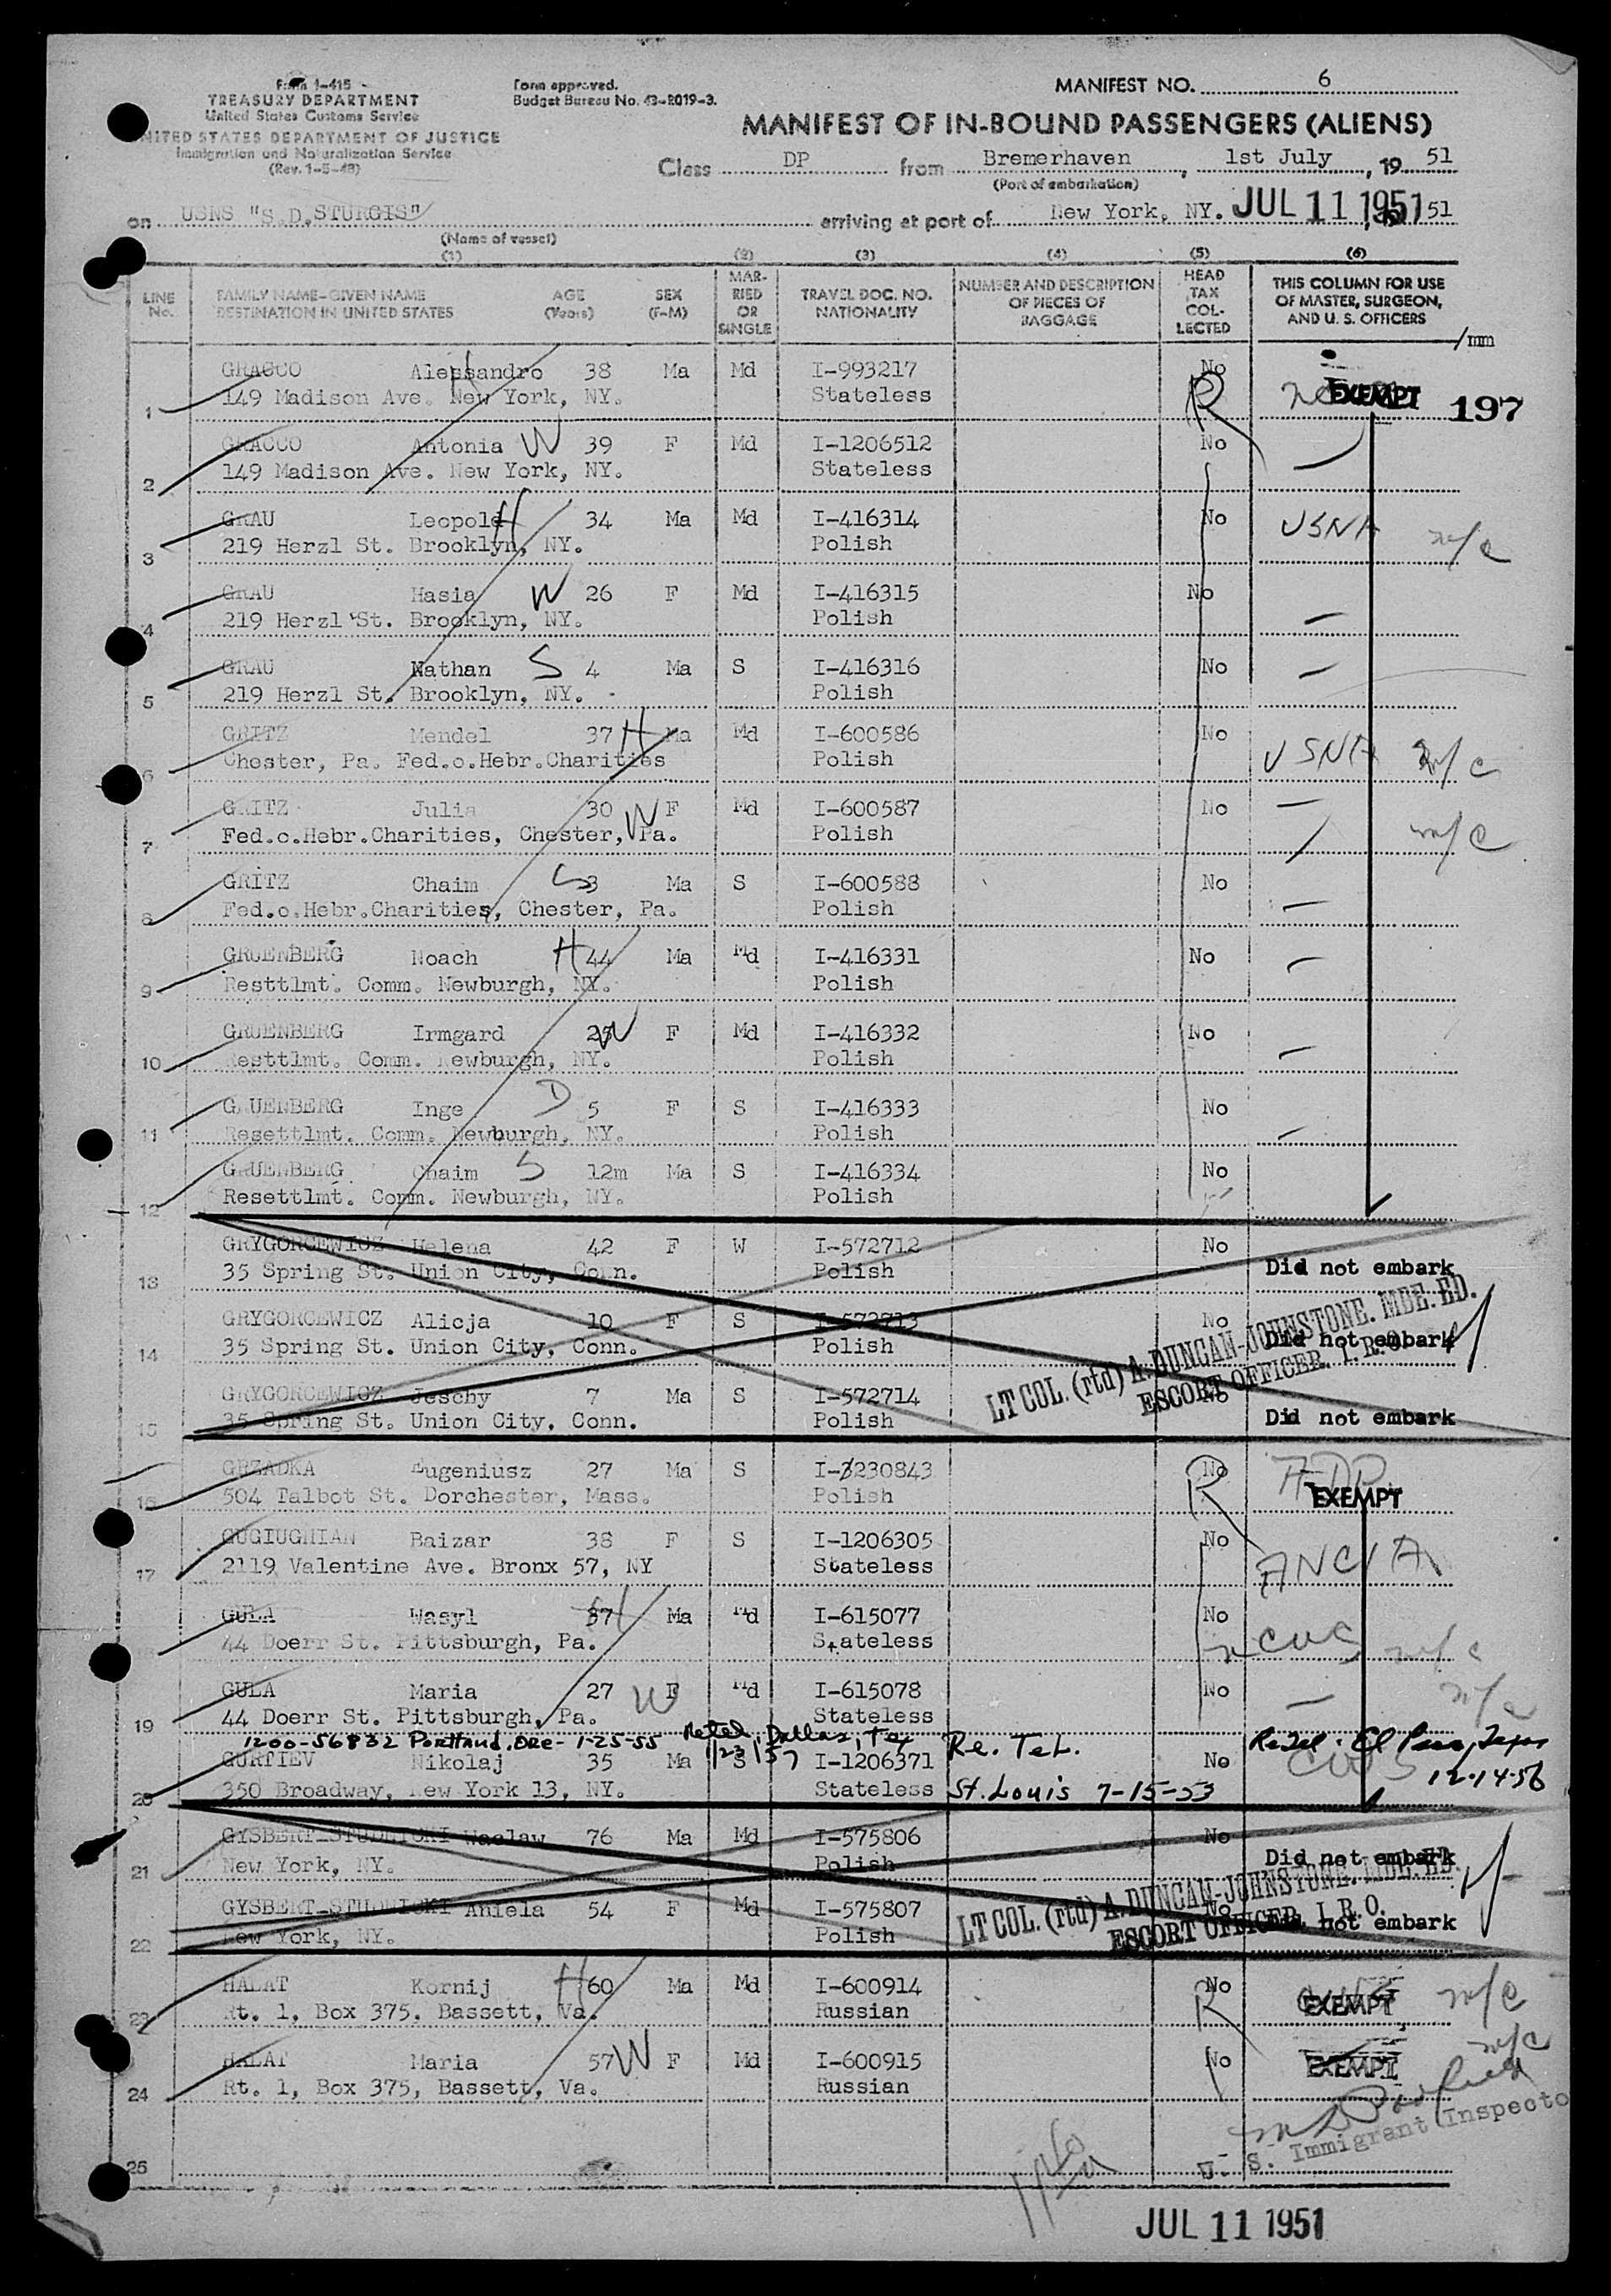 Form I-415
TREASURY DEPARTMENT
United States Customs Service
UNITED STATES DEPARTMENT OF JUSTICE
Immigration and Naturalization Service
(Rev. 1-5-48)
Form approved.
Budget Bureau No. 43-R019-3.
MANIFEST NO. 6
MANIFEST OF IN-BOUND PASSENGERS (ALIENS)
Class DP from Bremerhaven, 1st July, 19 51
(Port of embarkation)
on USNS "S.D.STURGIS" arriving at port of New York, NY. JUL 11 1951 51
(Name of vessel)
(1) (2) (3) (4) (5) (6)
LINE No.
FAMILY NAME—GIVEN NAME
DESTINATION IN UNITED STATES
AGE (Years)
SEX (F-M)
MARRIED OR SINGLE
TRAVEL DOC. NO. NATIONALITY
NUMBER AND DESCRIPTION OF PIECES OF BAGGAGE
HEAD TAX COL-LECTED
THIS COLUMN FOR USE OF MASTER, SURGEON, AND U. S. OFFICERS
/mm
GRACCO Alessandro 38 Ma Md I-993217 No EXEMPT
1 149 Madison Ave. New York, NY. Stateless R 197
GRACCO Antonia W 39 F Md I-1206512 No
2 149 Madison Ave. New York, NY. Stateless
GRAU Leopold H 34 Ma Md I-416314 No USNA n/c
3 219 Herzl St. Brooklyn, NY. Polish
GRAU Hasia W 26 F Md I-416315 No
4 219 Herzl St. Brooklyn, NY. Polish
GRAU Nathan S 4 Ma S I-416316 No
5 219 Herzl St. Brooklyn, NY. Polish
GRITZ Mendel 37 H Ma Md I-600586 No USNA n/c
6 Chester, Pa. Fed.o.Hebr.Charities Polish
GRITZ Julia 30 W F Md I-600587 No n/c
7 Fed.o.Hebr.Charities, Chester, Pa. Polish
GRITZ Chaim S 3 Ma S I-600588 No
8 Fed.o.Hebr.Charities, Chester, Pa. Polish
GRUENBERG Noach H 44 Ma Md I-416331 No
9 Resttlmt. Comm. Newburgh, NY. Polish
GRUENBERG Irmgard W F Md I-416332 No
10 Resttlmt. Comm. Newburgh, NY. Polish
GRUENBERG Inge D 5 F S I-416333 No
11 Resettlmt. Comm. Newburgh, NY. Polish
GRUENBERG Chaim S 12m Ma S I-416334 No
12 Resettlmt. Comm. Newburgh, NY. Polish
GRYGORCEWICZ Helena 42 F W I-572712 No
13 35 Spring St. Union City, Conn. Polish Did not embark
GRYGORCEWICZ Alicja 10 F S I-572713 No
14 35 Spring St. Union City, Conn. Polish Did not embark
LT COL. (rtd) A. DUNCAN-JOHNSTONE. MBE. ED.
ESCORT OFFICER. I. R. O.
GRYGORCEWICZ Jeschy 7 Ma S I-572714 No
15 35 Spring St. Union City, Conn. Polish Did not embark
GRZADKA Eugeniusz 27 Ma S I-3230843 No
16 504 Talbot St. Dorchester, Mass. Polish R EXEMPT
GUGIUGHIAN Baizar 38 F S I-1206305 No
17 2119 Valentine Ave. Bronx 57, NY Stateless ANCIA
GULA Wasyl 37 H Ma Md I-615077 No
18 44 Doerr St. Pittsburgh, Pa. Stateless NCWC n/c
GULA Maria 27 W F Md I-615078 No n/c
19 44 Doerr St. Pittsburgh, Pa. Stateless
1200-56832 Portland, Ore- 1-25-55 Retel. Dallas, Tex 1/23/57 Re. Tel. Retel: El Paso, Texas
GURTIEV Nikolaj 35 Ma S I-1206371 No CWS 12-14-56
20 350 Broadway, New York 13, NY. Stateless St. Louis 7-15-53
GYSBERT-STUDNICKI Waclaw 76 Ma Md I-575806 No
21 New York, NY. Polish Did not embark
LT COL. (rtd) A. DUNCAN-JOHNSTONE. MBE. ED.
ESCORT OFFICER. I. R. O.
GYSBERT-STUDNICKI Aniela 54 F Md I-575807 No
22 New York, NY. Polish not embark
HALAT Kornij H 60 Ma Md I-600914 No
23 Rt. 1, Box 375, Bassett, Va. Russian R EXEMPT n/c
HALAT Maria 57 W F Md I-600915 No EXEMPT n/c
24 Rt. 1, Box 375, Bassett, Va. Russian
U. S. Immigrant Inspecto
25
JUL 11 1951